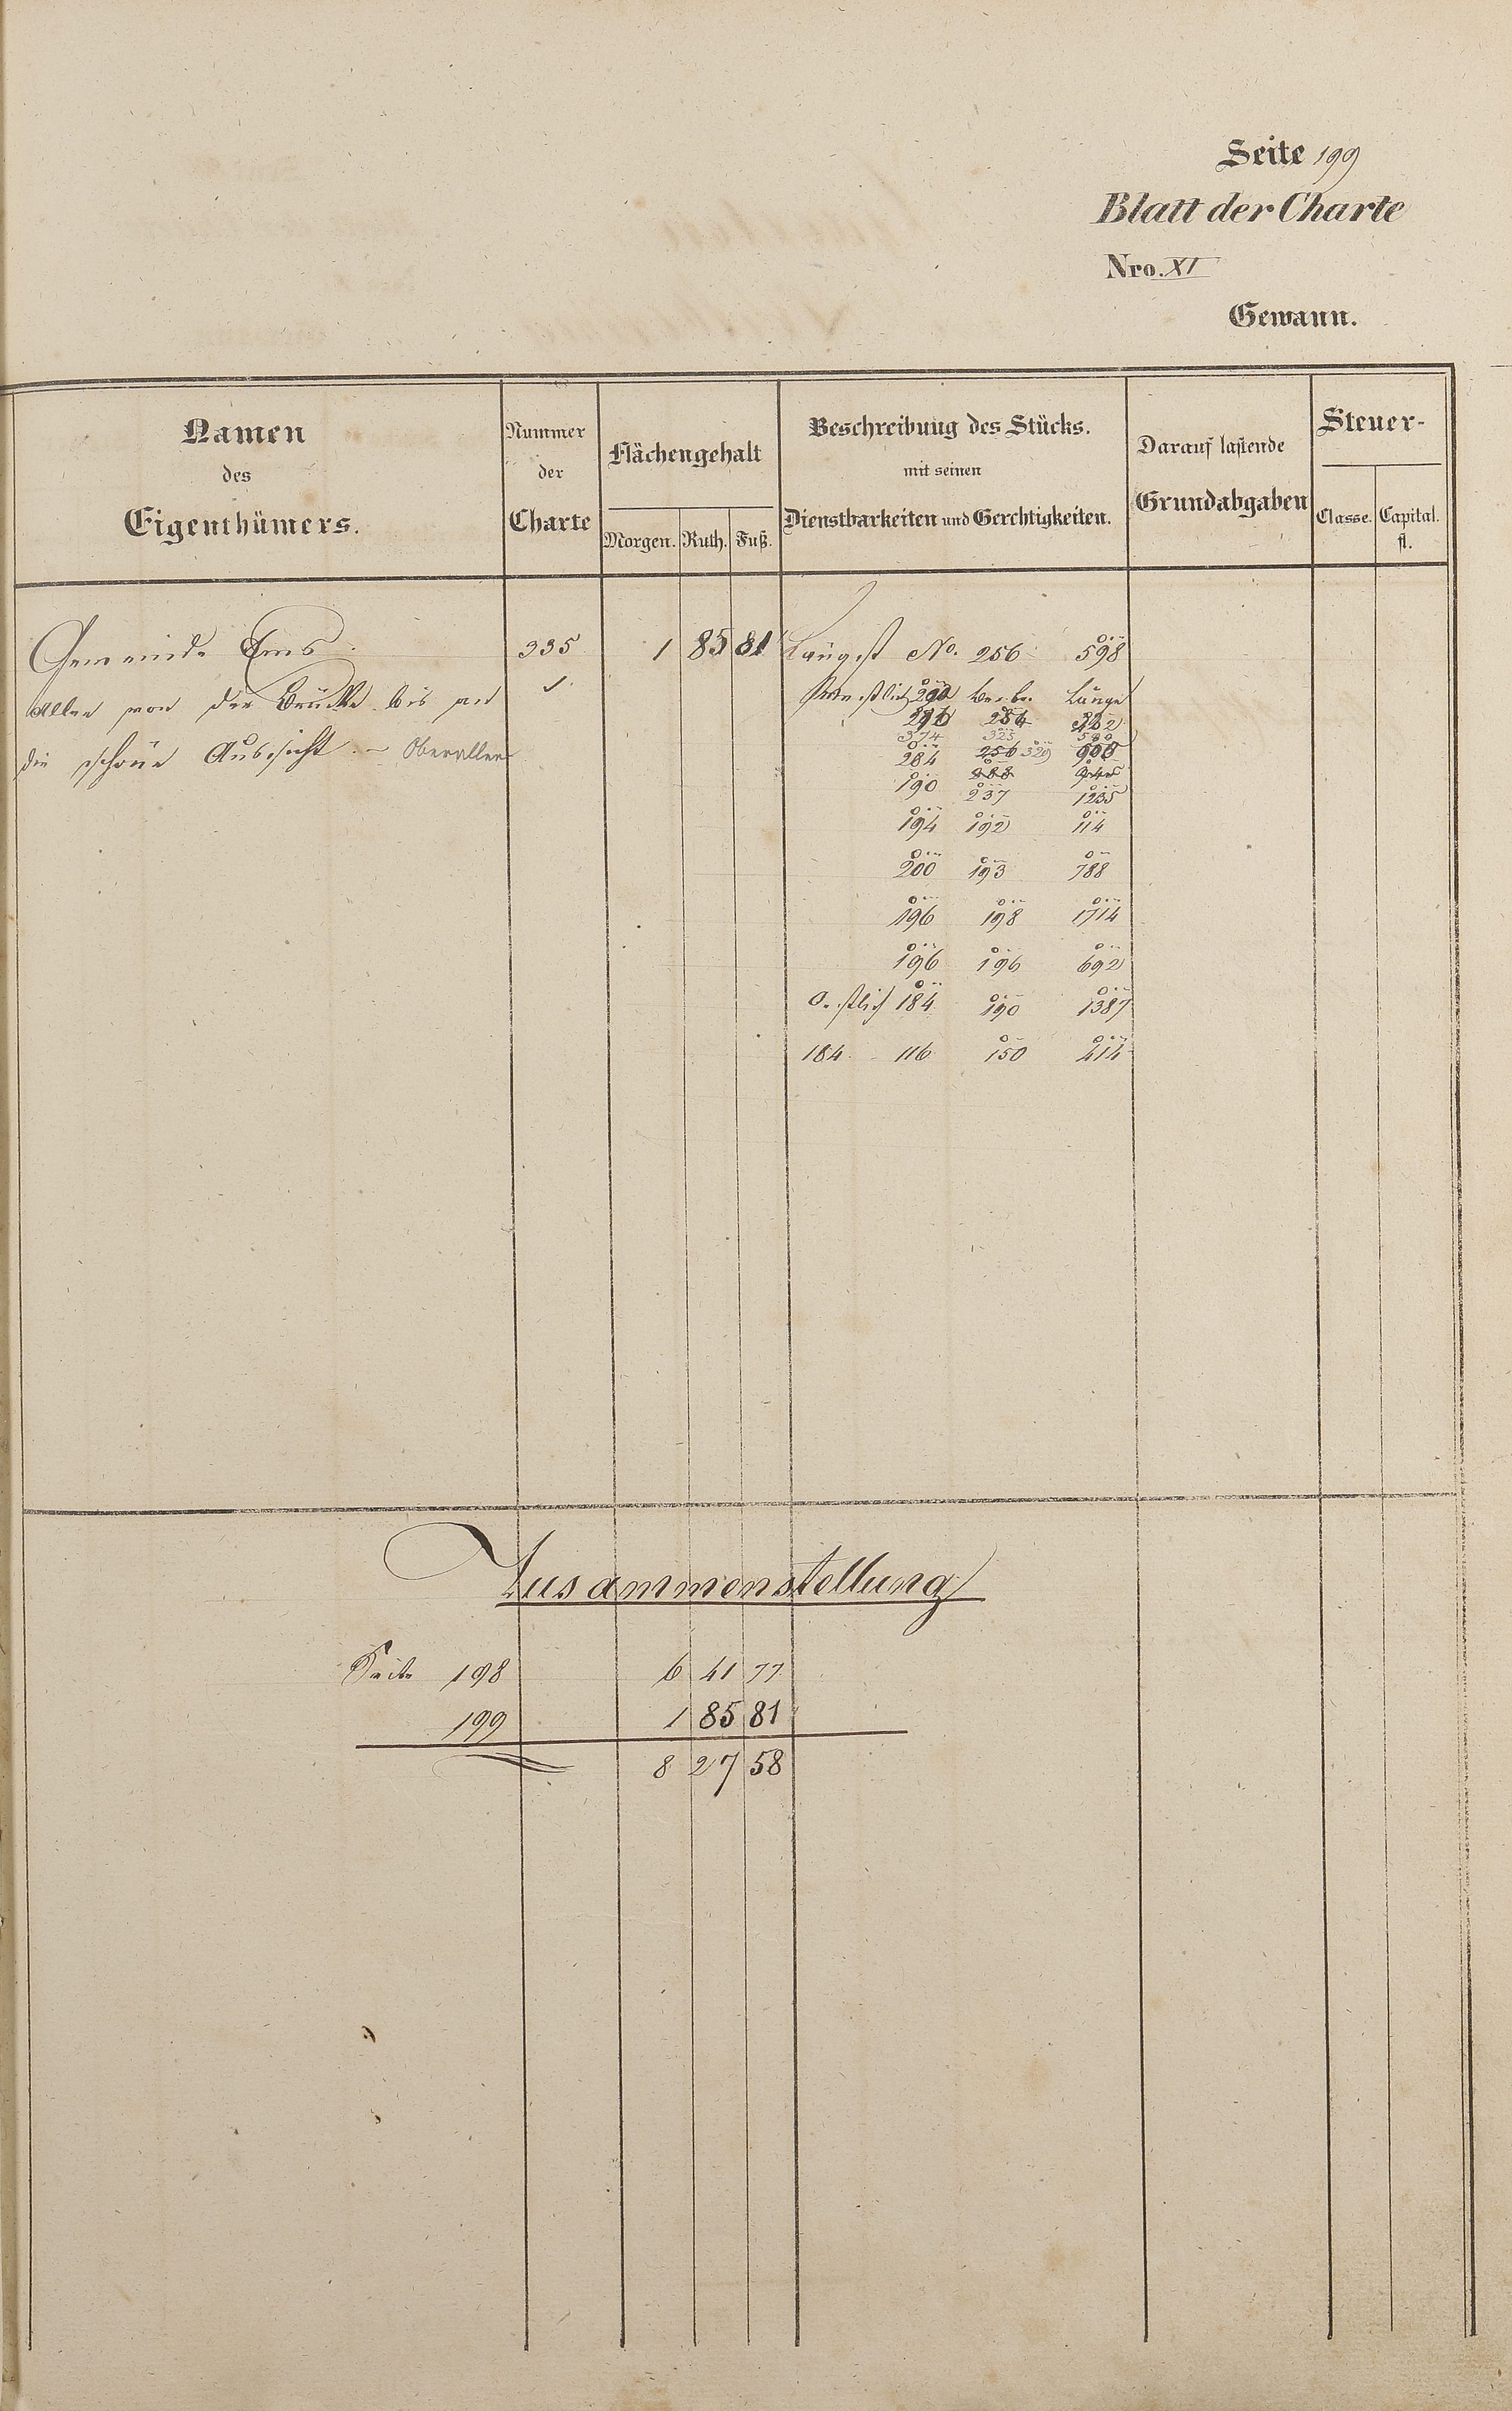 Seite 199
Blatt der Charte
Nro. XI
Gewann.
Namen des Eigenthümers.
Nummer der Charte
Flächengehalt
Morgen. Ruth. Fuß.
Beschreibung des Stücks. mit seinen Dienstbarkeiten und Gerechtigkeiten.
Darauf lastende Grundabgaben
Steuer-
Classe. Capital. fl.
Gemeinde Ems. 335 1 85 81 Längst No. 256 598
Allee von der Brücke bis an
die schöne Aussicht. – Oberallee
Länge
374 325 580
284 256 329 900
190 237 1235
194 192 114
200 193 788
196 198 1714
196 196 692
184 190 1387
184 116 150 414
Zusammenstellung
Seite 198 6 41 77
199 1 85 81
8 27 58